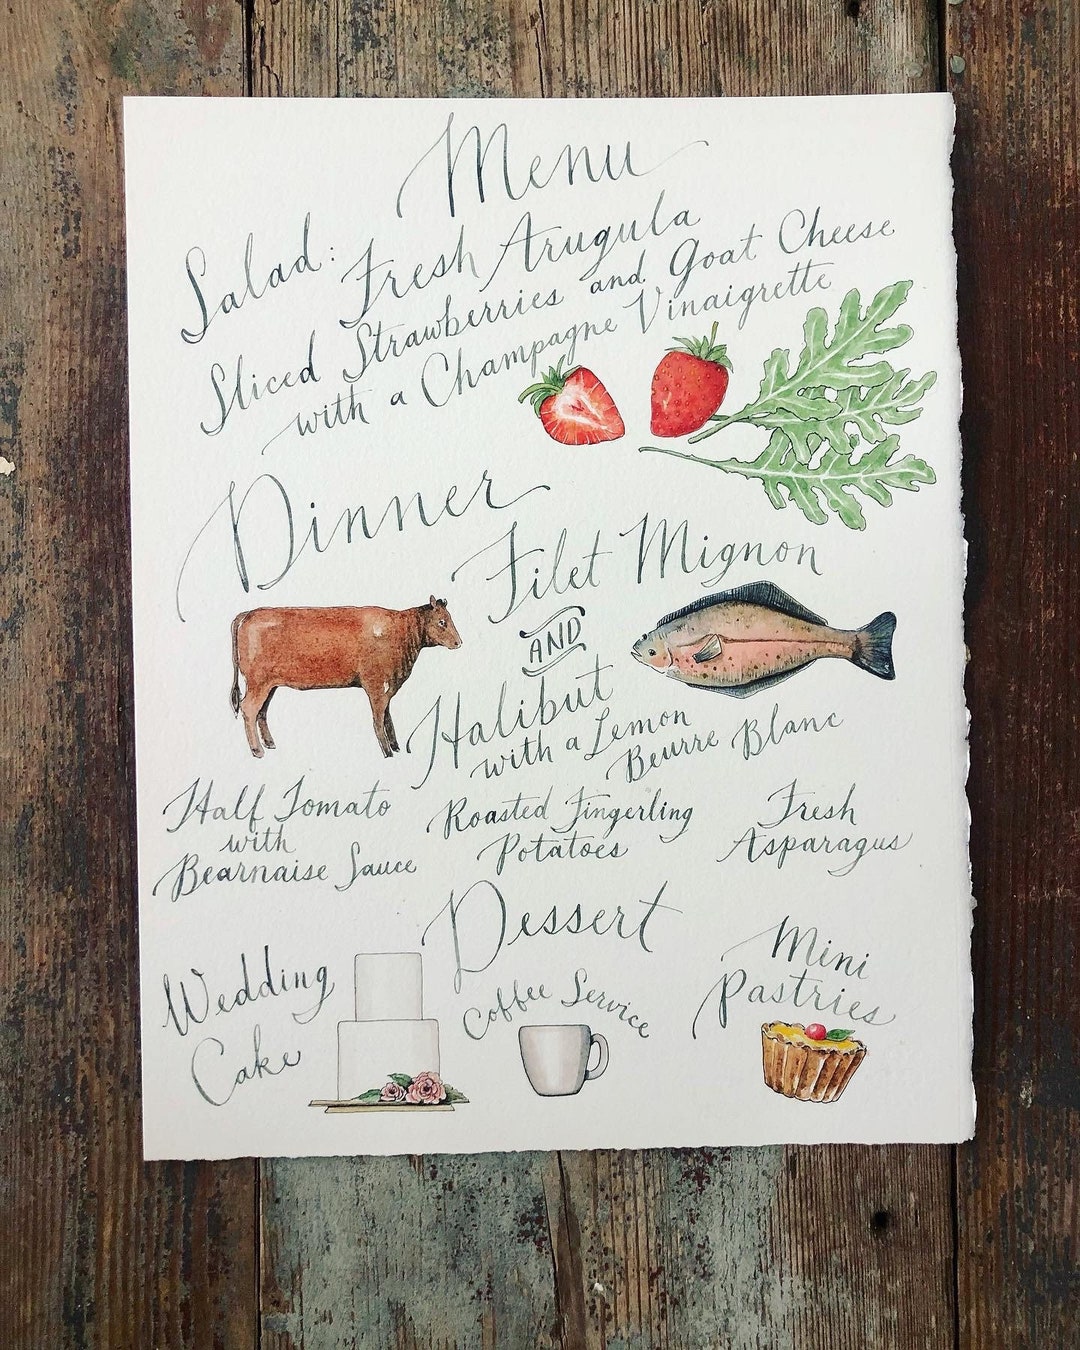 Menu
Salad: Fresh Arugula
Sliced Strawberries and Goat Cheese
with a Champagne Vinaigrette
Dinner
Filet Mignon
AND
Halibut
with a Lemon
Beurre Blanc
Half Tomato
with
Bearnaise Sauce
Roasted Fingerling
Potatoes
Fresh
Asparagus
Dessert
Wedding
Cake
Coffee Service
Mini
Pastries